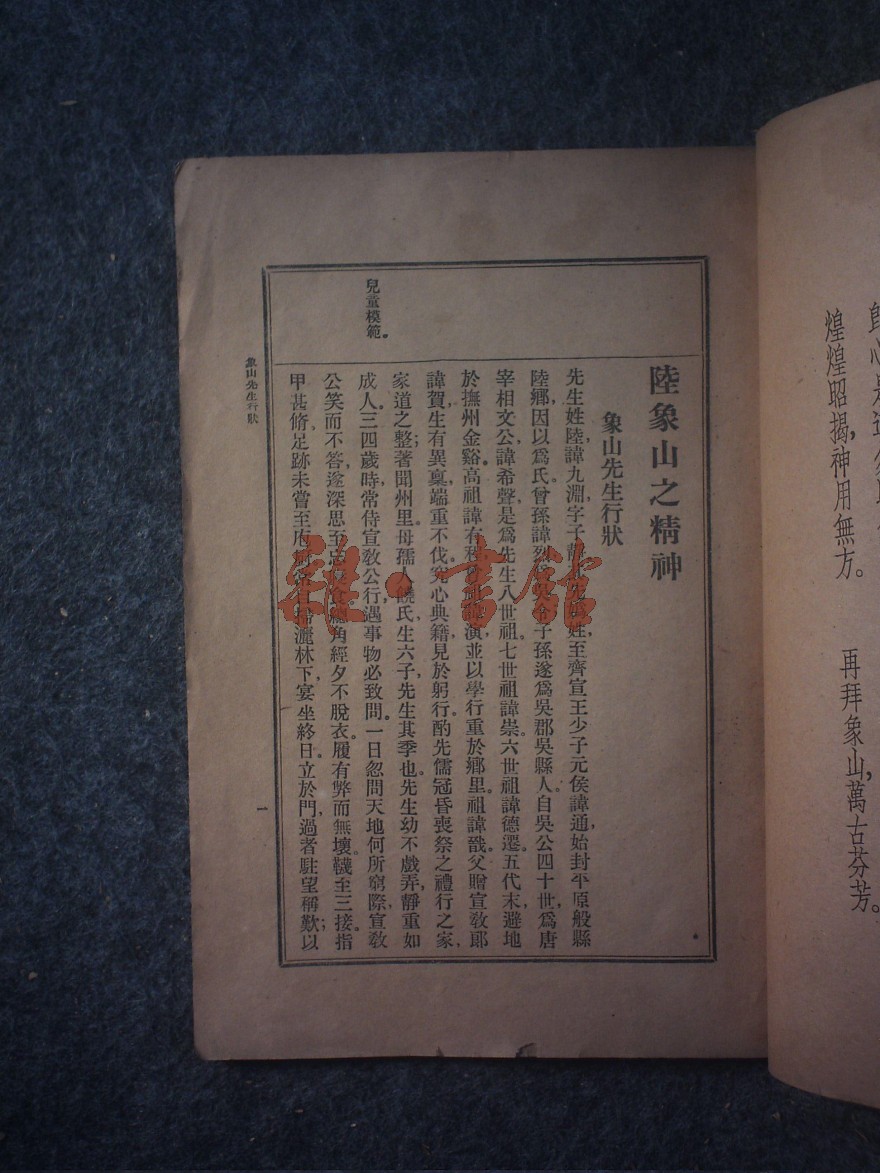 煌煌昭揭，神用無方。
再拜象山，萬古芬芳。
陸象山之精神
象山先生行狀
先生姓陸，諱九淵，字子靜，姓，至齊宣王少子元侯諱通，始封平原般縣
陸鄉，因以爲氏。曾孫諱烈，爲吳令，子孫遂爲吳郡吳縣人。自吳公四十世爲唐
宰相文公諱希聲，是爲先生八世祖。七世祖諱崇。六世祖諱德遷。五代末避地
於撫州金谿。高祖諱有程，曾祖諱演，並以學行重於鄉里。祖諱戩。父贈宣敎郞
諱賀，生有異稟，端重不伐，究心典籍，見於躬行。酌先儒冠昏喪祭之禮行之家，
家道之整，著聞州里。母孺人饒氏生六子，先生其季也。先生幼不戲弄，靜重如
成人。三四歲時，常侍宣敎公行，遇事物必致問。一日忽問天地何所窮際，宣敎
公笑而不答，遂深思至忘寢食。總角經夕不脫衣。履有弊而無壞。韈至三接。指
甲甚脩，足跡未嘗至庖廚。常自掃灑林下，宴坐終日。立於門，過者駐望稱歎；以
兒童模範。
象山先生行狀
一
雜·書館